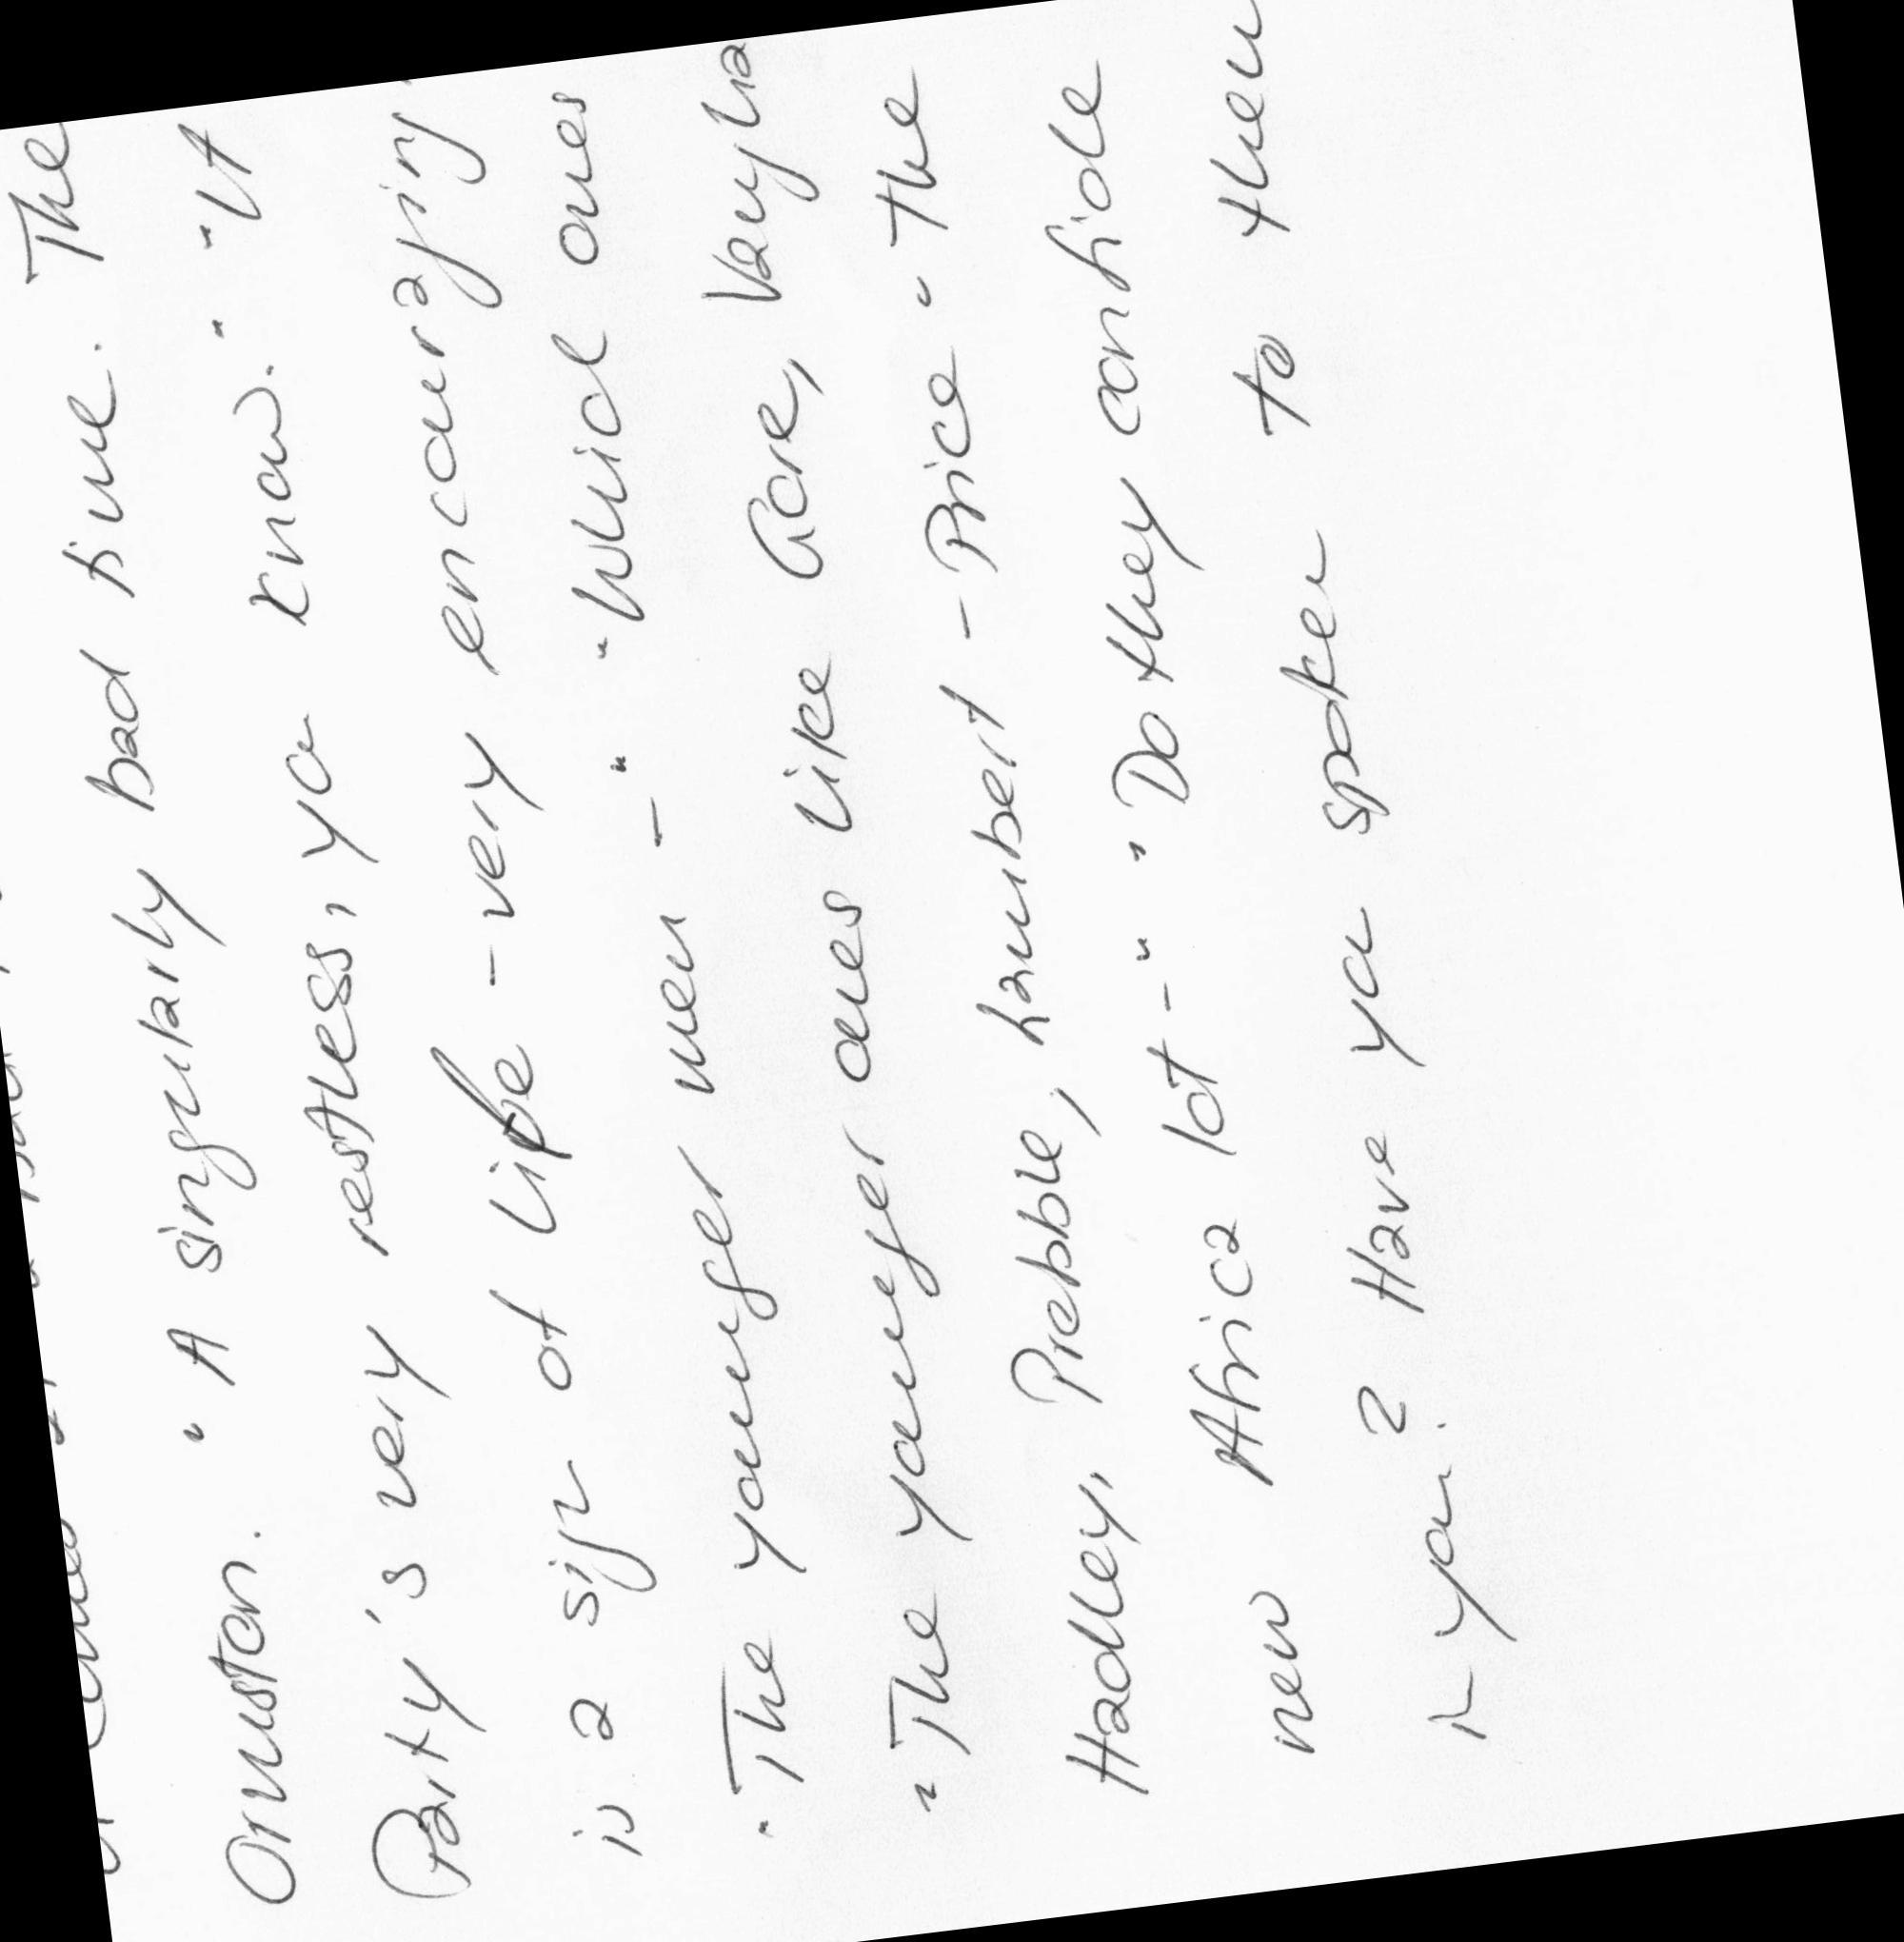 Ormsten. " A singularly bad time. The
Party's very restless, you know. " " It
is a sign of life - very encouraging.
" The younger men - " " Which ones
" The younger ones like Gore, Vaugha
Hadley, Prebble, Lambert - Price - the
new Africa lot - " " Do they confide
in you? Have you spoken to them